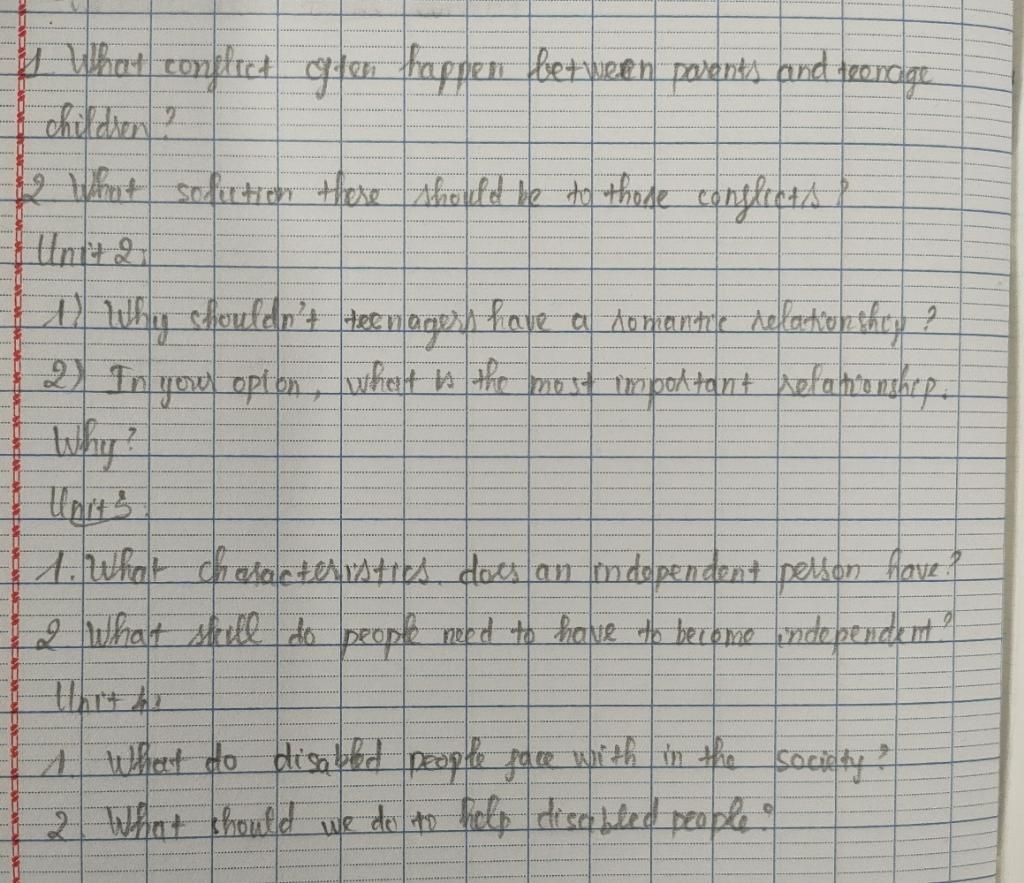 1 What conflict often happen between parents and teenage
children?
2 What solution there should be to those conflicts?
Unit 2:
1) Why shouldn't teenagers have a romantic relationship?
2) In your option, what is the most important relationship.
Why?
Unit 3:
1. What characteristics does an independent person have?
2 What skill do people need to have to become independent?
Unit 4:
1. What do disabled people face with in the society?
2. What should we do to help disabled people?